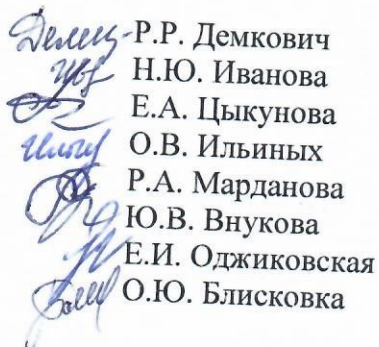 Р.Р. Демкович
Н.Ю. Иванова
Е.А. Цыкунова
О.В. Ильиных
Р.А. Марданова
Ю.В. Внукова
Е.И. Оджиковская
О.Ю. Блисковка